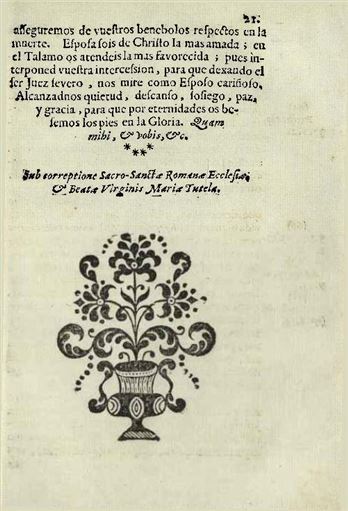 21.
asseguremos de vuestros benebolos respectos en la
muerte. Esposa sois de Christo la mas amada; en
el Talamo os atendeis la mas favorecida; pues in-
terponed vuestra intercession, para que dexando el
ser Juez severo, nos mire como Esposo cariñoso.
Alcanzadnos quietud, descanso, sosiego, paz,
y gracia, para que por eternidades os be-
semos los pies en la Gloria. Quam
mihi, & vobis, &c.
***
Sub correptione Sacro-Sanctæ Romanæ Ecclesiæ,
& Beatæ Virginis Mariæ Tutela.